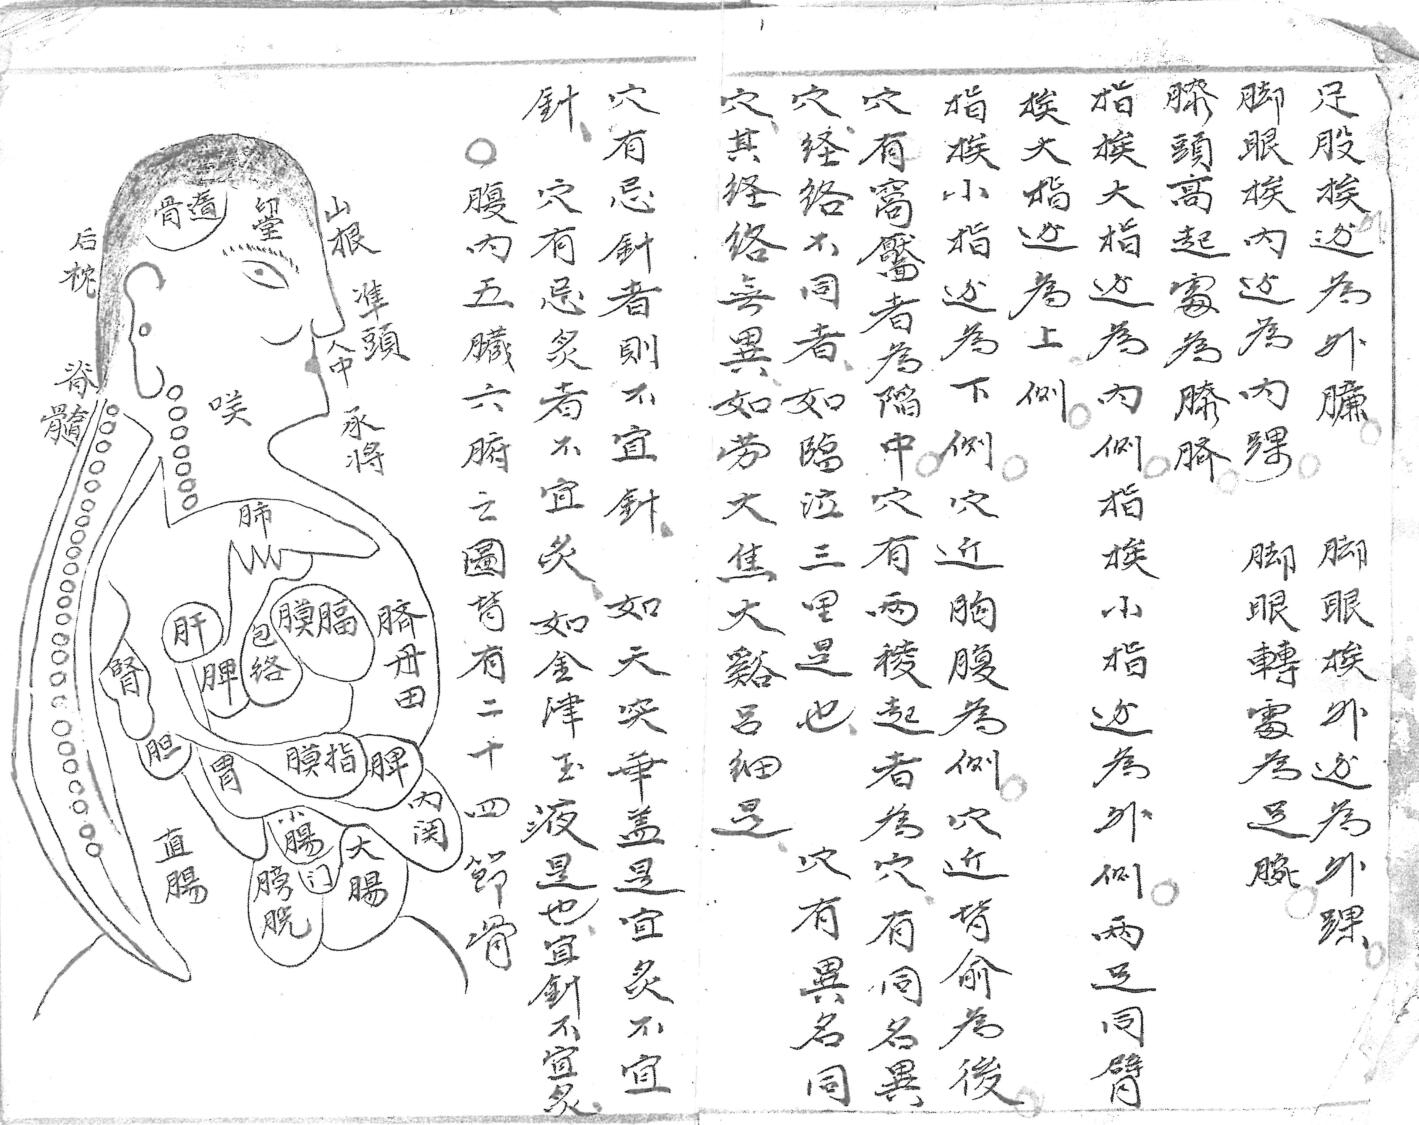 足股挨边為外臁 脚眼挨外边為外踝
脚眼挨内边為内踝 脚眼轉處為足腕
膝頭高起處為膝臍
指挨大指边為内側指挨小指边為外側两足同臂
挨大指边為上側
指挨小指边為下側穴近胸腹為側穴近背俞為後
穴有窩靨者為陷中穴有两稜起者為穴有同名異
穴経絡不同者如臨泣三里是也 穴有異名同
穴其経絡無異如劳大焦大谿吕細是
穴有忌針者則不宜針 如天突華盖是宜炙不宜
針 穴有忌炙者不宜炙 如金津玉液是也宜針不宜炙
〇腹内五臓六腑亡圖背有二十四節骨
山根
準頭
人中
承将
印堂
骨遁
后枕
脊髓
咲
肺
肝
脾
包絡
膜膈
臍丹田
腎
胆
胃
膜指
脾
内関
小腸
大腸
门
膀胱
直腸